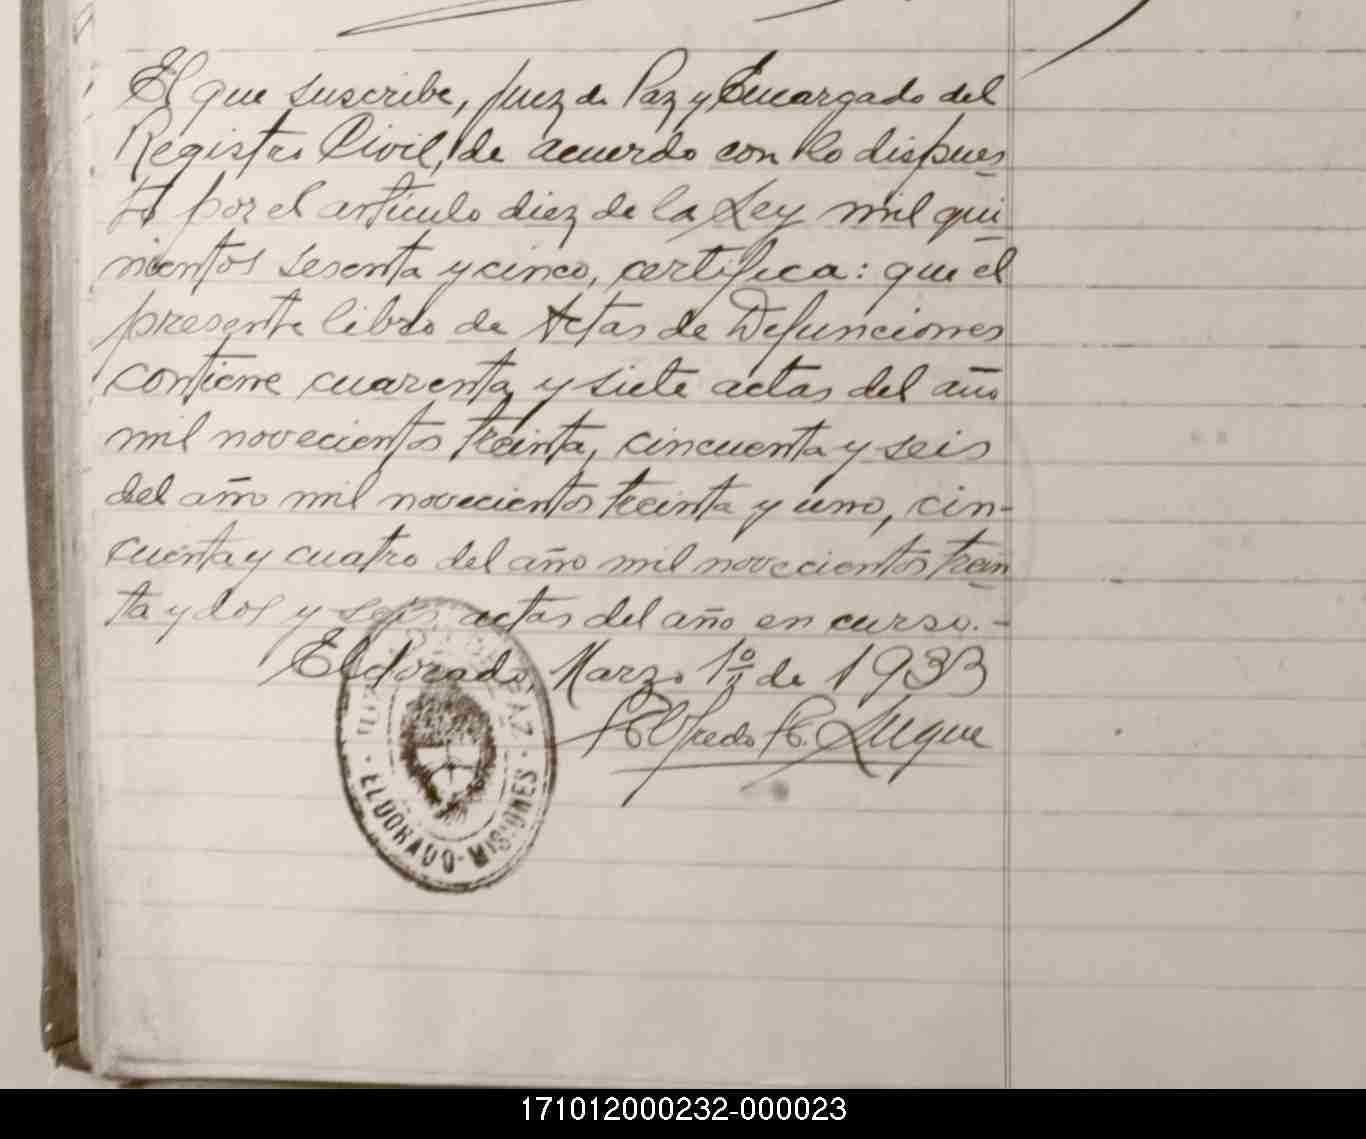 El que suscribe, Juez de Paz y Encargado del
Registro Civil, de acuerdo con lo dispues
to por el artículo diez de la Ley mil qui
nientos sesenta y cinco, certifica: que el
presente libro de Actas de Defunciones
contiene cuarenta y siete actas del año
mil novecientos treinta, cincuenta y seis
del año mil novecientos treinta y uno, cin-
cuenta y cuatro del año mil novecientos trein
ta y dos y seis actas del año en curso.-
Eldorado, Marzo 1º de 1933
Alfredo A. Luque
PAZ
ELDORADO - MISIONES
171012000232-000023